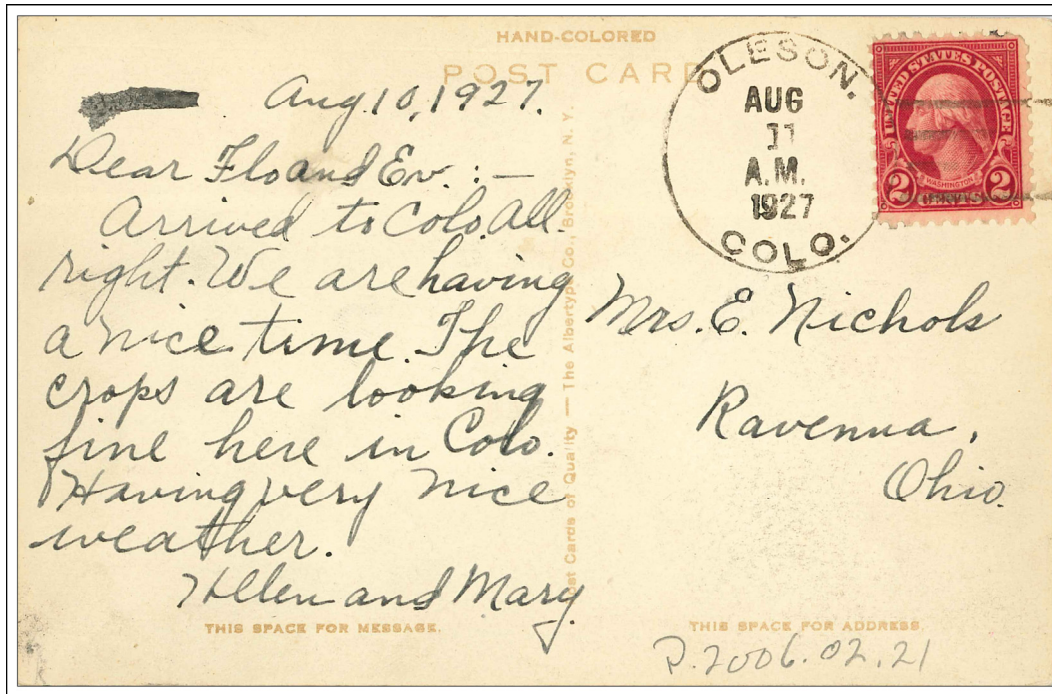 HAND-COLORED
POST CARD
OLESON.
AUG
11
A.M.
1927
COLO.
UNITED STATES POSTAGE
WASHINGTON
2 CENTS 2
Aug 10, 1927.
Dear Flo and Ev. : —
Arrived to Colo. all
right. We are having
a nice time. The
crops are looking
fine here in Colo.
Having very nice
weather.
Hellen and Mary
THIS SPACE FOR MESSAGE.
Post Cards of Quality — The Albertype Co., Brooklyn, N. Y.
Mrs. E. Nichols
Ravenna,
Ohio.
THIS SPACE FOR ADDRESS.
P.2006.02.21